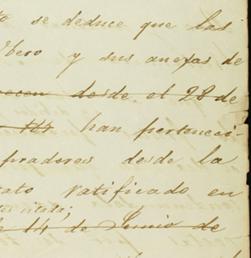 to se deduce que las
Ebero y sus anejas de
recen desde el 28 de
han pertenecí
pradores desde la
ato ratificado en
14 de Junio de